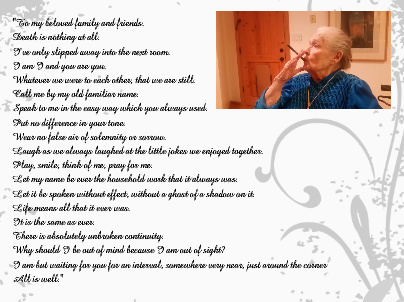 "To my beloved family and friends.
Death is nothing at all.
I've only slipped away into the next room.
I am I and you are you.
Whatever we were to each other, that we are still.
Call me by my old familiar name.
Speak to me in the easy way which you always used.
Put no difference in your tone.
Wear no false air of solemnity or sorrow.
Laugh as we always laughed at the little jokes we enjoyed together.
Play, smile, think of me, pray for me.
Let my name be ever the household work that it always was.
Let it be spoken without effect, without a ghost of a shadow on it.
Life means all that it ever was.
It is the same as ever.
There is absolutely unbroken continuity.
Why should I be out of mind because I am out of sight?
I am but waiting for you for an interval, somewhere very near, just around the corner
All is well."